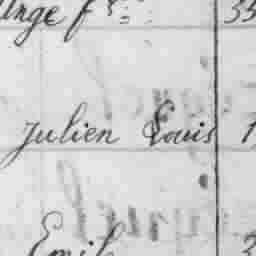 Ange fs 33
Julien Louis 1
Emil 3